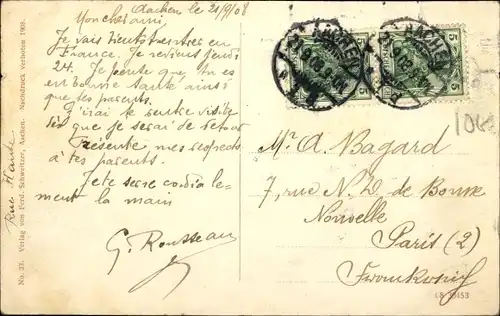 Aachen le 21/9/08
Mon cher ami,
Je vais bientôt rentrer en
France. Je reviens jeudi
24. Je pense que tu es
en bonne santé ainsi
que tes parents.
J'irai te rendre visite
dès que je serai de retour
Présente mes respects
à tes parents.
Je te serre cordiale-
ment la main
G. Rousseau
Rue
No. 23. Verlag von Ferd. Schweitzer, Aachen. Nachdruck verboten 1908.
AACHEN
AACHEN
5
5
Mr A. Bagard
7, rue N. D. de Bonne
Nouvelle
Paris (2)
Frankreich